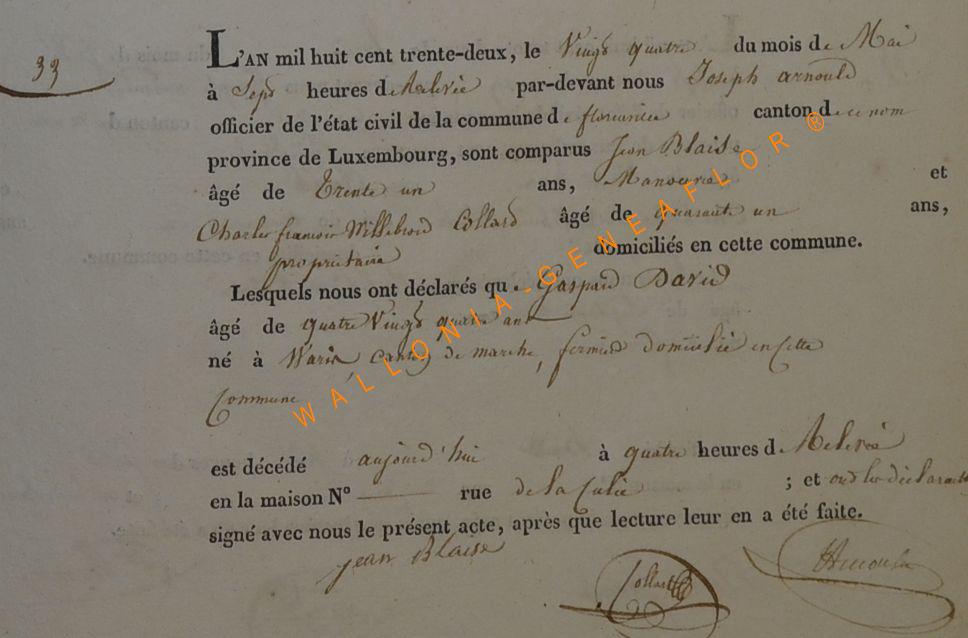 33
L'AN mil huit cent trente-deux, le Vingt quatre du mois de Mai
à Sept heures de Relevée par-devant nous Joseph arnould
officier de l'état civil de la commune de florenville canton de ce nom
province de Luxembourg, sont comparus Jean Blaise
âgé de Trente un ans, Manoeuvre et
Charles francois Willebrord Collard âgé de quarante un ans,
propriétaire domiciliés en cette commune.
Lesquels nous ont déclarés que Gaspard David
âgé de quatre Vingt quatre ans
né à Waris, canton de marche, fermier domicilié en Cette
Commune
est décédé aujourd'hui à quatre heures de Relevée
en la maison N° rue de la ; et ont les déclarants
signé avec nous le présent acte, après que lecture leur en a été faite.
jean Blaise
Collard
Arnould
WALLONIA-GENEAFLOR ®